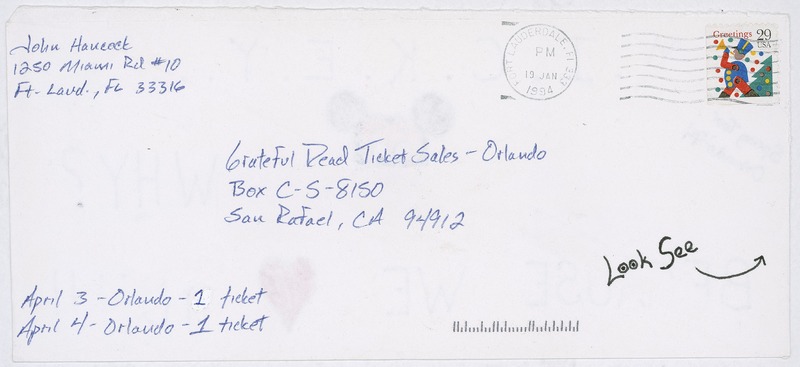 John Hancock
1250 Miami Rd #10
Ft. Laud., FL 33316
FORT LAUDERDALE, FL 333
PM
19 JAN
1994
Greetings 29
USA
Grateful Dead Ticket Sales - Orlando
Box C-S-8150
San Rafael, CA 94912
Look See
April 3 - Orlando - 1 ticket
April 4 - Orlando - 1 ticket
WHY?
WE